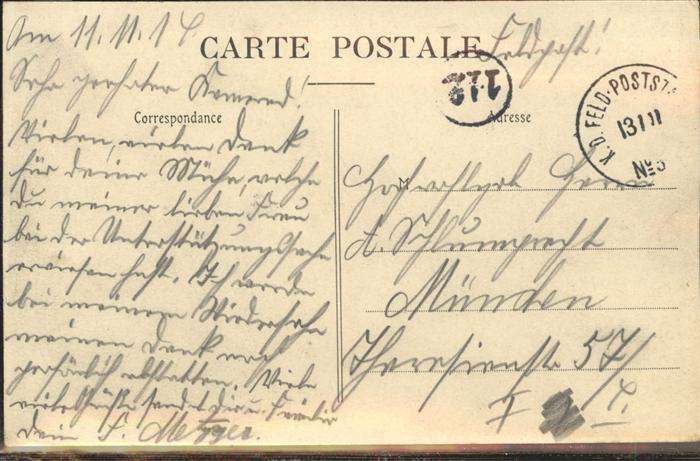 Am 11.11.14
CARTE POSTALE
Feldpost!
Sehr geehrter Kamerad!
Correspondance
Adresse
112
K.D. FELD-POSTSTA
13/11
No 3
Vielen, vielen Dank
für deine Mühe, welche
Du meiner lieben Frau
bei der Unterstützungssache
erwiesen hast. Ich werde
bei meinem Wiedersehn
meinen Dank noch
persönlich abstatten. Viele
dein J. Metzger.
Hochwohlgeb. Herrn
A. Schlumprecht
München
Theresienstr. 57/
I